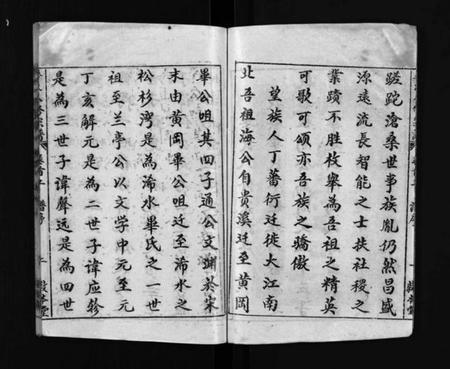 蹉跎滄桑世事族胤仍然昌盛
源遠流長智能之士扶社稷之
業蹟不胜枚舉為吾祖之精英
可歌可頌亦吾族之驕傲
望族人丁蕃衍迁徙大江南
北吾祖海公自贵溪迁至黄岡
畢公咀其四子通公文渊於宋
末由黄岡畢公咀迁至浠水之
松杉湾是為浠水畢氏之一世
祖至兰亭公以文学中元至元
丁亥解元是為二世子諱应軫
是為三世子諱聲远是為四世